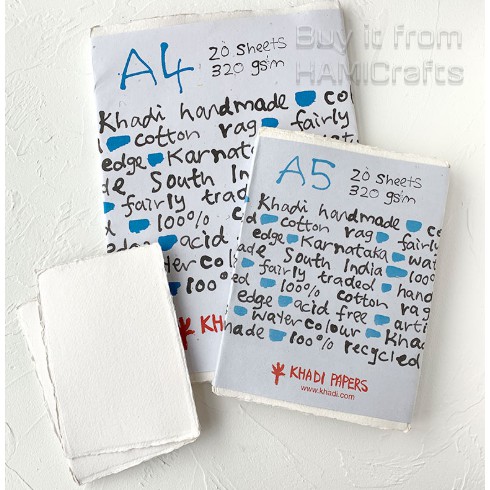 Buy it from
HAMICrafts
A4
20 sheets
320 gsm
Khadi handmade co
cotton rag fairly
edge Karnataka
de South India
fairly traded
100% c
d acid
er colour
100%
KHADI
A5
20 sheets
320 gsm
Khadi handmade co
d cotton rag fairly
edge Karnataka wat
ade South India 100
fairly traded hand
d 100% cotton rag
edge acid free arti
watercolour Kha
made 100% recycled
KHADI PAPERS
www.khadi.com